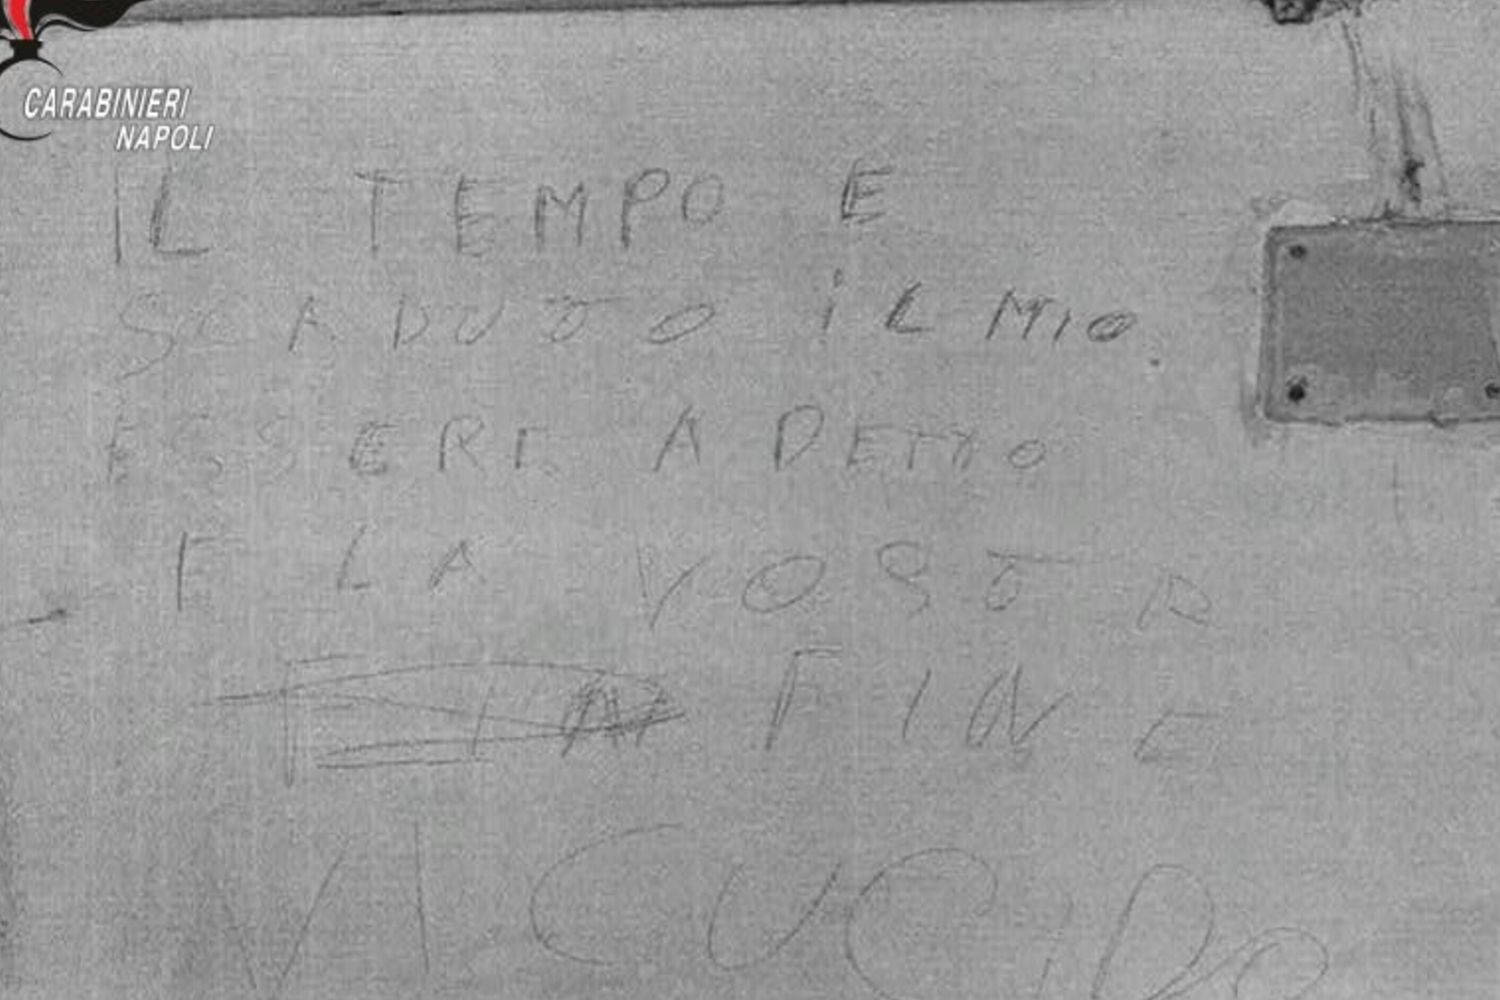 CARABINIERI
NAPOLI
IL TEMPO E
SCADUTO IL MIO.
ESSERE ADEMO
E LA VOSTR
FIN FINE
VI CUCIRO